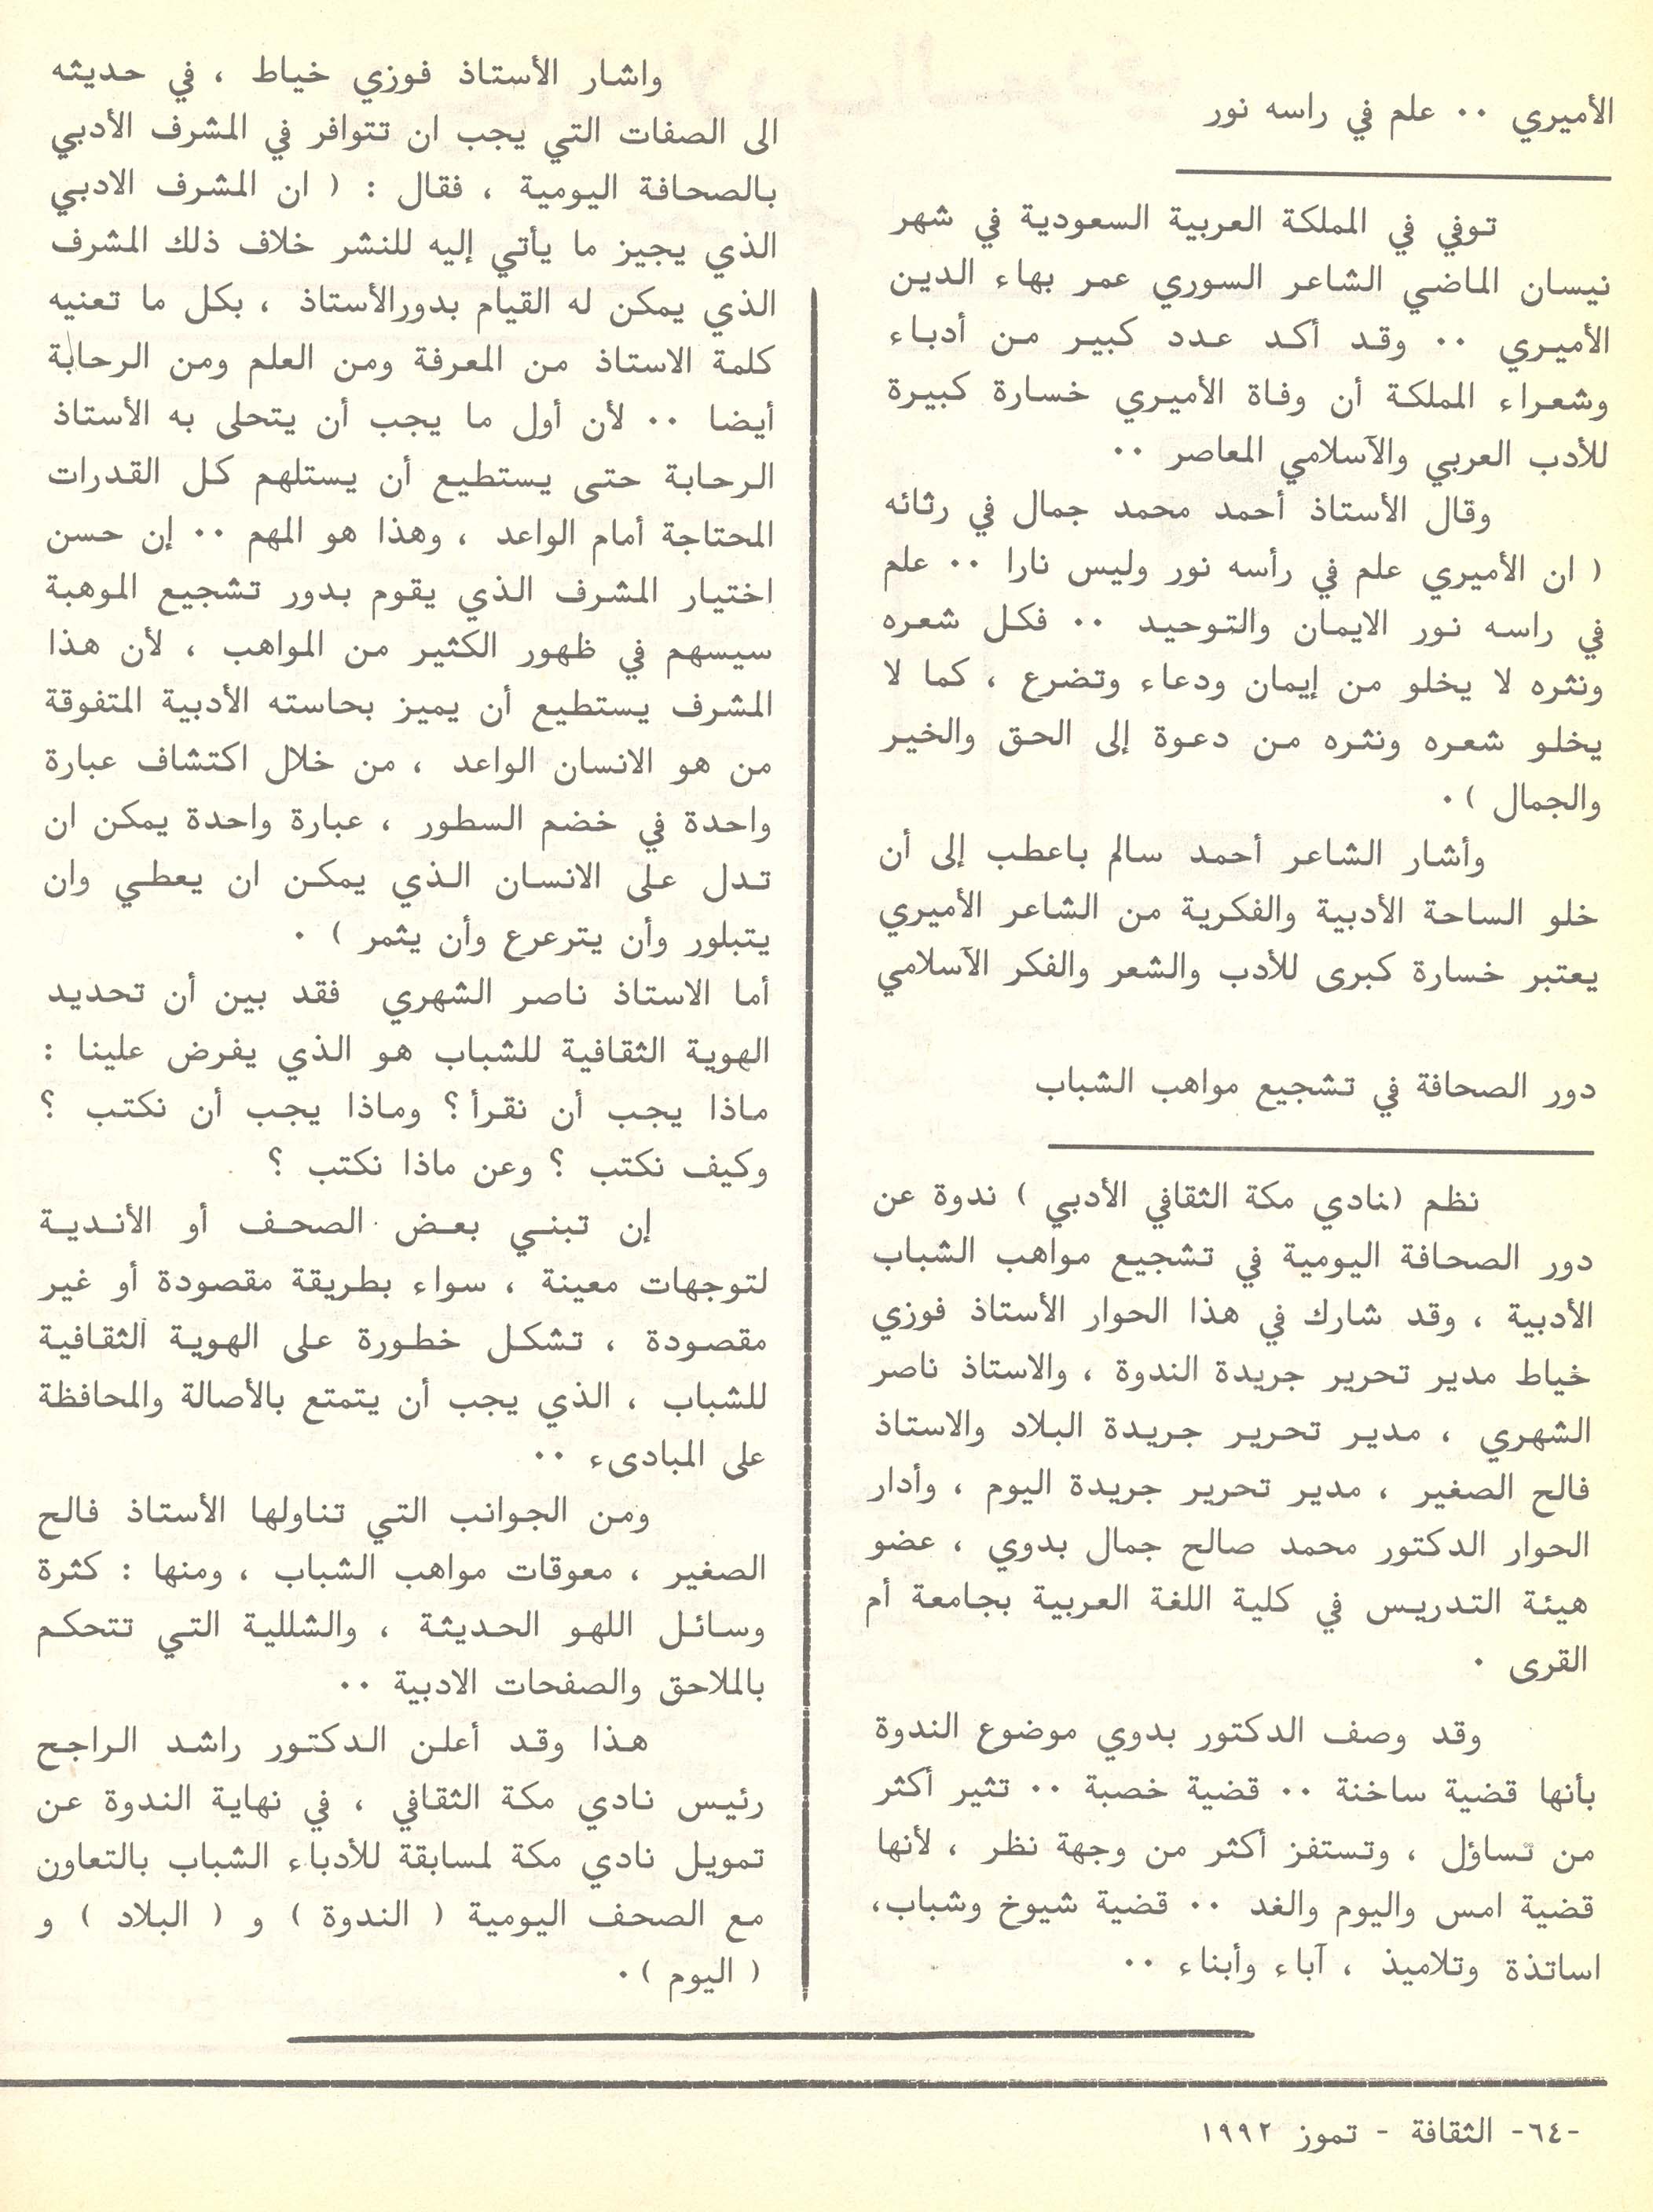 الأميري ٠٠ علم في راسه نور
توفي في المملكة العربية السعودية في شهر
نيسان الماضي الشاعر السوري عمر بهاء الدين
الأميري ٠٠ وقد أكد عدد كبير من أدباء
وشعراء المملكة أن وفاة الأميري خسارة كبيرة
للأدب العربي والآسلامي المعاصر ٠٠
وقال الأستاذ أحمد محمد جمال في رثائه
( ان الأميري علم في رأسه نور وليس نارا ٠٠ علم
في راسه نور الايمان والتوحيد ٠٠ فكل شعره
ونثره لا يخلو من إيمان ودعاء وتضرع ، كما لا
يخلو شعره ونثره من دعوة إلى الحق والخير
والجمال ) ٠
وأشار الشاعر أحمد سالم باعطب إلى أن
خلو الساحة الأدبية والفكرية من الشاعر الأميري
يعتبر خسارة كبرى للأدب والشعر والفكر الآسلامي
دور الصحافة في تشجيع مواهب الشباب
نظم (لنادي مكة الثقافي الأدبي ) ندوة عن
دور الصحافة اليومية في تشجيع مواهب الشباب
الأدبية ، وقد شارك في هذا الحوار الأستاذ فوزي
خياط مدير تحرير جريدة الندوة ، والاستاذ ناصر
الشهري ، مدير تحرير جريدة البلاد والاستاذ
فالح الصغير ، مدير تحرير جريدة اليوم ، وأدار
الحوار الدكتور محمد صالح جمال بدوي ، عضو
هيئة التدريس في كلية اللغة العربية بجامعة أم
القرى ٠
وقد وصف الدكتور بدوي موضوع الندوة
بأنها قضية ساخنة ٠٠ قضية خصبة ٠٠ تثير أكثر
من تساؤل ، وتستفز أكثر من وجهة نظر ، لأنها
قضية امس واليوم والغد ٠٠ قضية شيوخ وشباب،
اساتذة وتلاميذ ، آباء وأبناء ٠٠
واشار الأستاذ فوزي خياط ، في حديثه
الى الصفات التي يجب ان تتوافر في المشرف الأدبي
بالصحافة اليومية ، فقال : ( ان المشرف الادبي
الذي يجيز ما يأتي إليه للنشر خلاف ذلك المشرف
الذي يمكن له القيام بدورالأستاذ ، بكل ما تعنيه
كلمة الاستاذ من المعرفة ومن العلم ومن الرحابة
أيضا ٠٠ لأن أول ما يجب أن يتحلى به الأستاذ
الرحابة حتى يستطيع أن يستلهم كل القدرات
المحتاجة أمام الواعد ، وهذا هو المهم ٠٠ إن حسن
اختيار المشرف الذي يقوم بدور تشجيع الموهبة
سيسهم في ظهور الكثير من المواهب ، لأن هذا
المشرف يستطيع أن يميز بحاسته الأدبية المتفوقة
من هو الانسان الواعد ، من خلال اكتشاف عبارة
واحدة في خضم السطور ، عبارة واحدة يمكن ان
تدل على الانسان الذي يمكن ان يعطي وان
يتبلور وأن يترعرع وأن يثمر ) ٠
أما الاستاذ ناصر الشهري فقد بين أن تحديد
الهوية الثقافية للشباب هو الذي يفرض علينا :
ماذا يجب أن نقرأ ؟ وماذا يجب أن نكتب ؟
وكيف نكتب ؟ وعن ماذا نكتب ؟
إن تبني بعض الصحف أو الأندية
لتوجهات معينة ، سواء بطريقة مقصودة أو غير
مقصودة ، تشكل خطورة على الهوية الثقافية
للشباب ، الذي يجب أن يتمتع بالأصالة والمحافظة
على المبادىء ٠٠
ومن الجوانب التي تناولها الأستاذ فالح
الصغير ، معوقات مواهب الشباب ، ومنها : كثرة
وسائل اللهو الحديثة ، والشللية التي تتحكم
بالملاحق والصفحات الادبية ٠٠
هذا وقد أعلن الدكتور راشد الراجح
رئيس نادي مكة الثقافي ، في نهاية الندوة عن
تمويل نادي مكة لمسابقة للأدباء الشباب بالتعاون
مع الصحف اليومية ( الندوة ) و ( البلاد ) و
( اليوم ) ٠
-٦٤- الثقافة - تموز ١٩٩٢